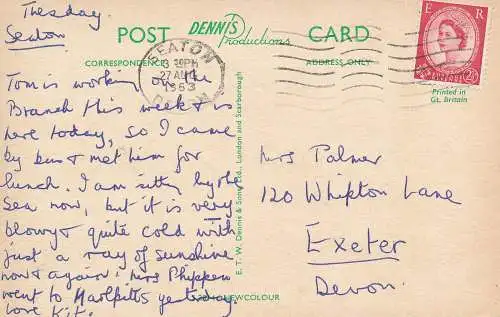 Tuesday
Seaton
POST
DENNIS
Productions
CARD
CORRESPONDENCE
ADDRESS ONLY
SEATON
3 30PM
27 AUG
1963
E R
2½
Printed in
Gt. Britain
Tom is working on the
Branch this week & is
here today, so I came
by bus & met him for
lunch. I am sitting by the
Sea now, but it is very
blowy & quite cold with
just a ray of sunshine
now & again. Mrs Phippen
went to Harlpitts yesterday.
Love Kit.
E. T. W. Dennis & Sons, Ltd., London and Scarborough
NEWCOLOUR
Mrs Palmer
120 Whipton Lane
Exeter
Devon.